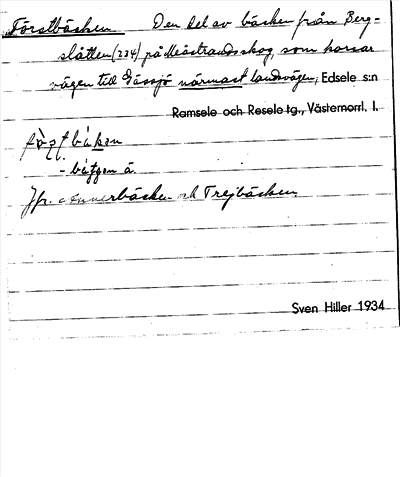 Förstbäcken Den del av bäcken från Berg-
slåtten (234) på Meåstrands skog, som korsar
vägen till Gässjö närmast landsvägen, Edsele s:n
Ramsele och Resele tg., Västernorrl. l.
- bäʃʃen å.
Jfr. Annerbäcken och Trejbäcken
Sven Hiller 1934